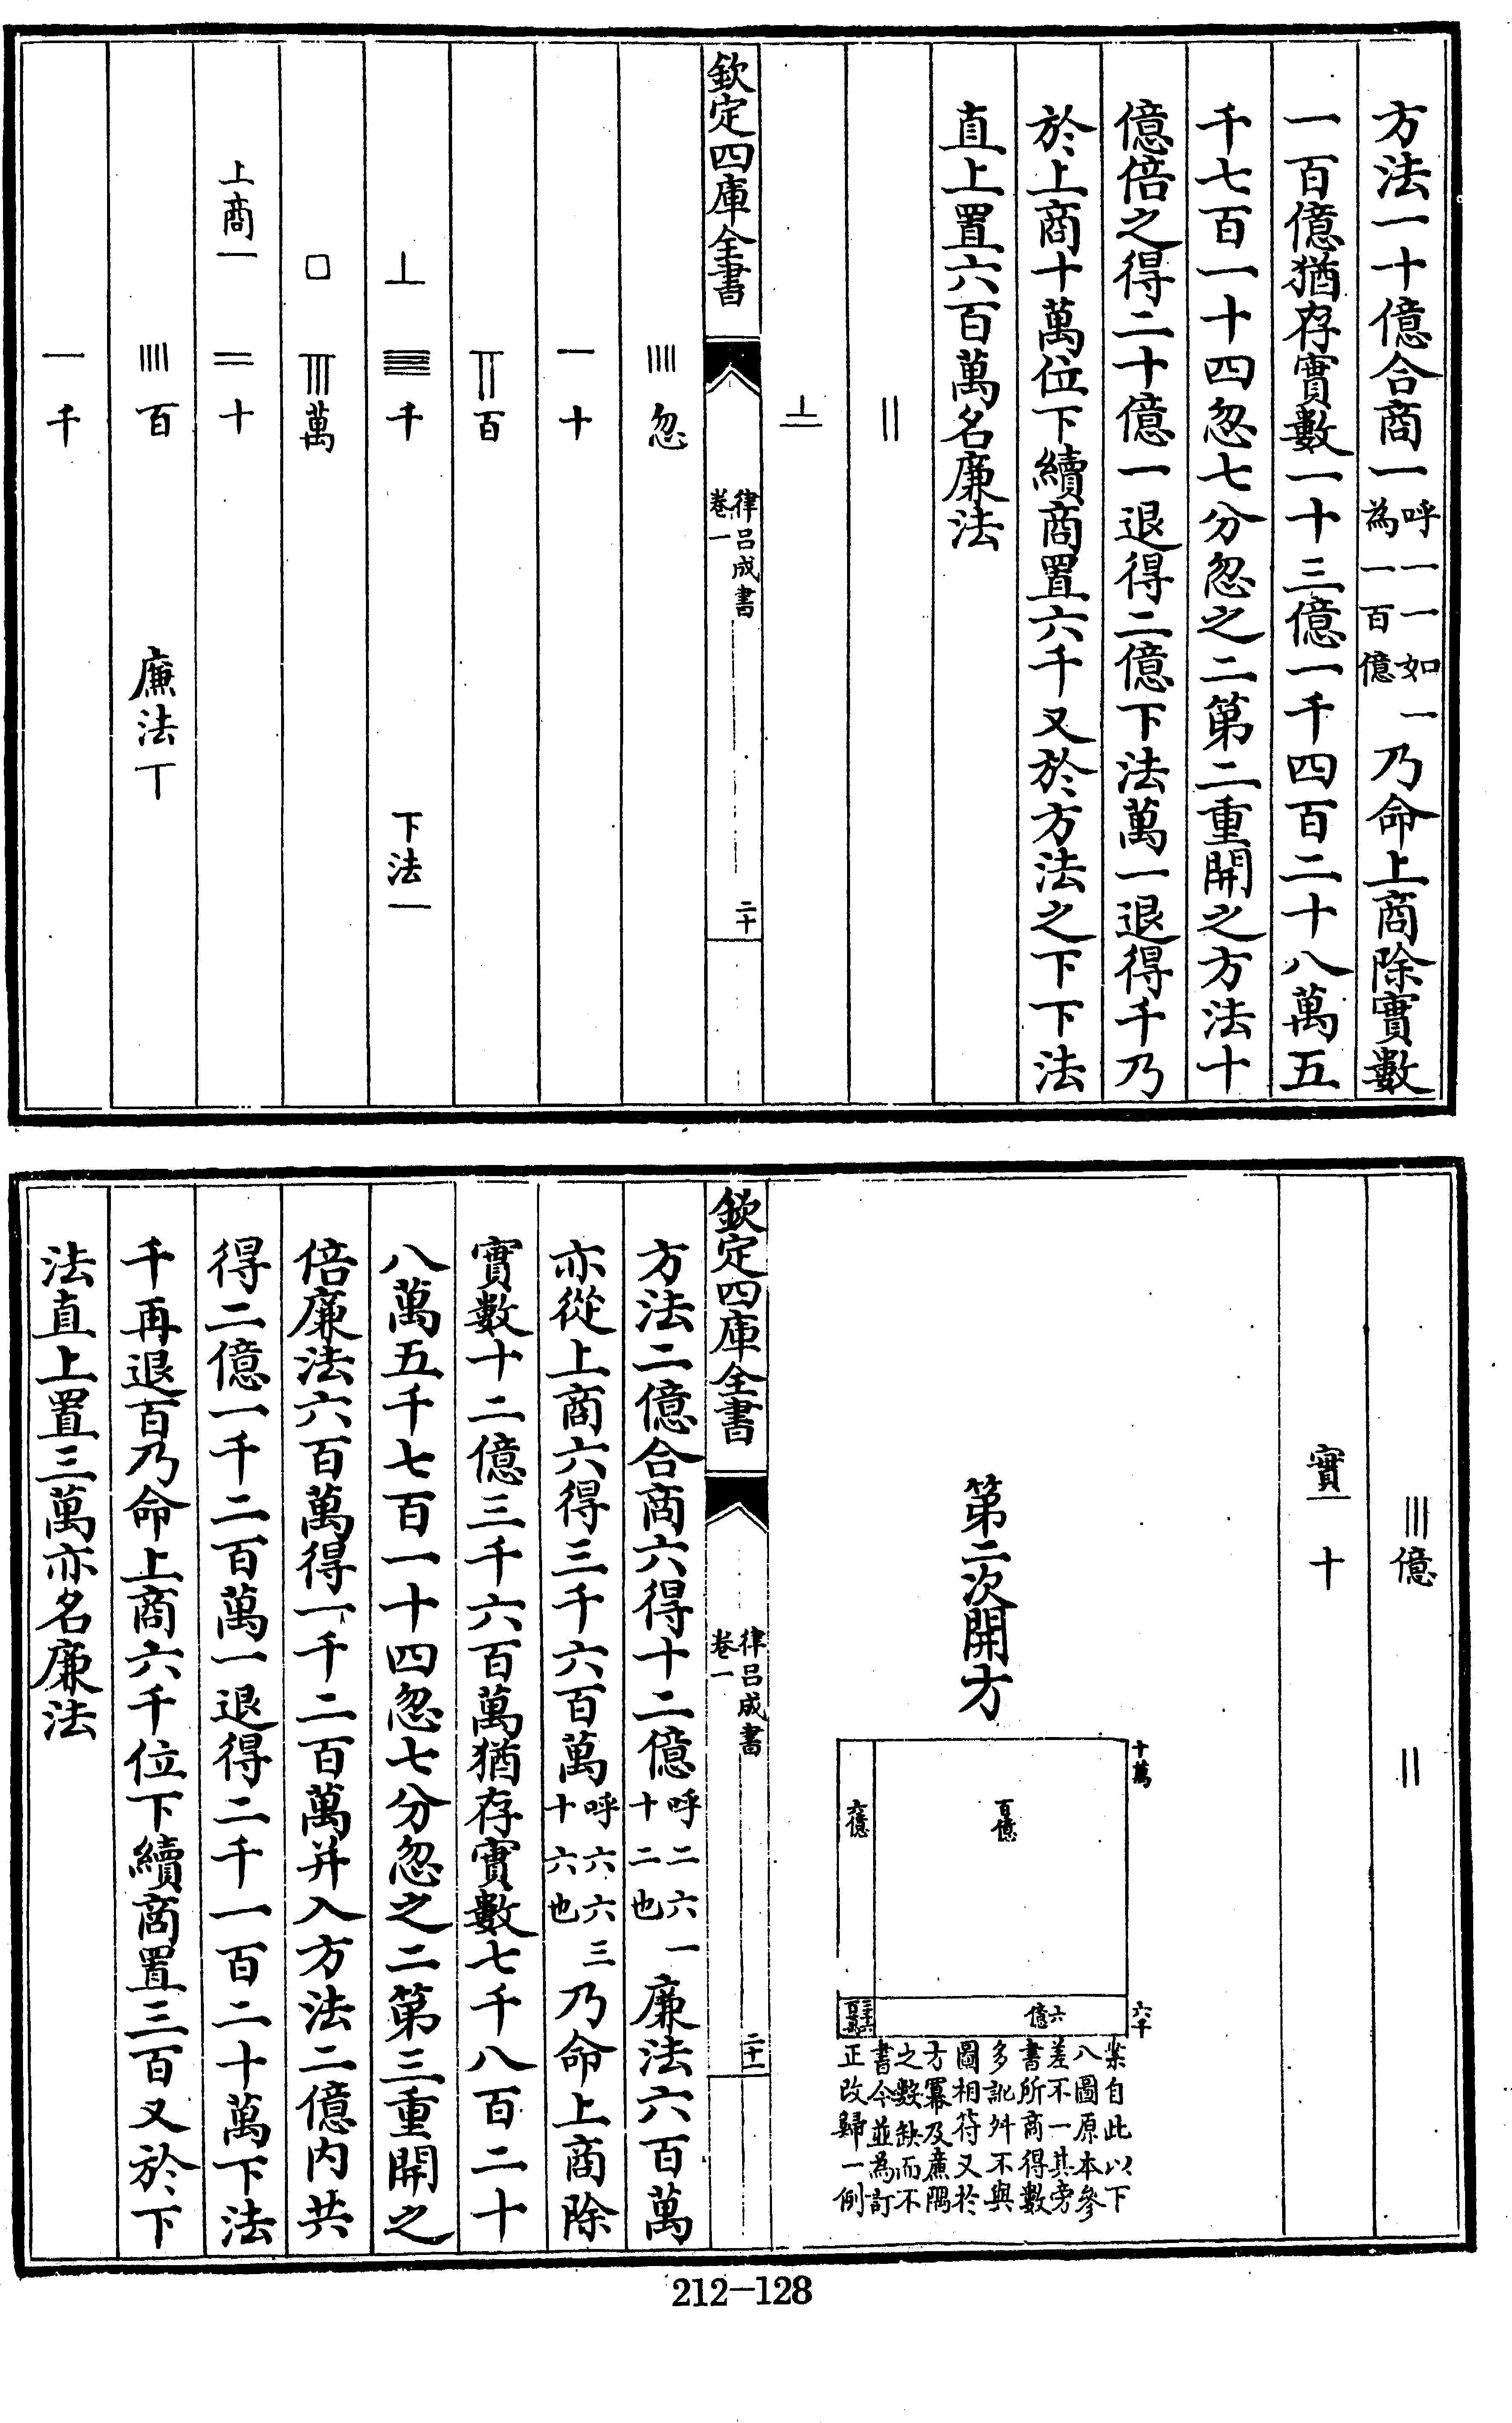 方法一十億合商一呼一一如一為一百億乃命上商除實數
一百億猶存實數一十三億一千四百二十八萬五
千七百一十四忽七分忽之二第二重開之方法十
億倍之得二十億一退得二億下法萬一退得千乃
於上商十萬位下續商置六千又於方法之下下法
直上置六百萬名廉法
〢
〦
欽定四庫全書
律吕成書
卷一
二十
𝍣忽
一十
𝍦百
⊥ 千
下法一
□ 萬
上商一 二十
百 廉法丅
一千
億 〢
實一 十
第二次開方
十萬
百億
六億
六億
六千
三千六百萬
案自此以下
八圖原本參
差不一其旁
書所商得數
多訛舛不與
圖相符又於
方冪及廉隅
之數缺而不
書今並為訂
正改歸一例
欽定四庫全書
律吕成書
卷一
二十一
方法二億合商六得十二億呼二六一十二也廉法六百萬
亦從上商六得三千六百萬呼六六三十六也乃命上商除
實數十二億三千六百萬猶存實數七千八百二十
八萬五千七百一十四忽七分忽之二第三重開之
倍廉法六百萬得一千二百萬并入方法二億内共
得二億一千二百萬一退得二千一百二十萬下法
千再退百乃命上商六千位下續商置三百又於下
法直上置三萬亦名廉法
212-128